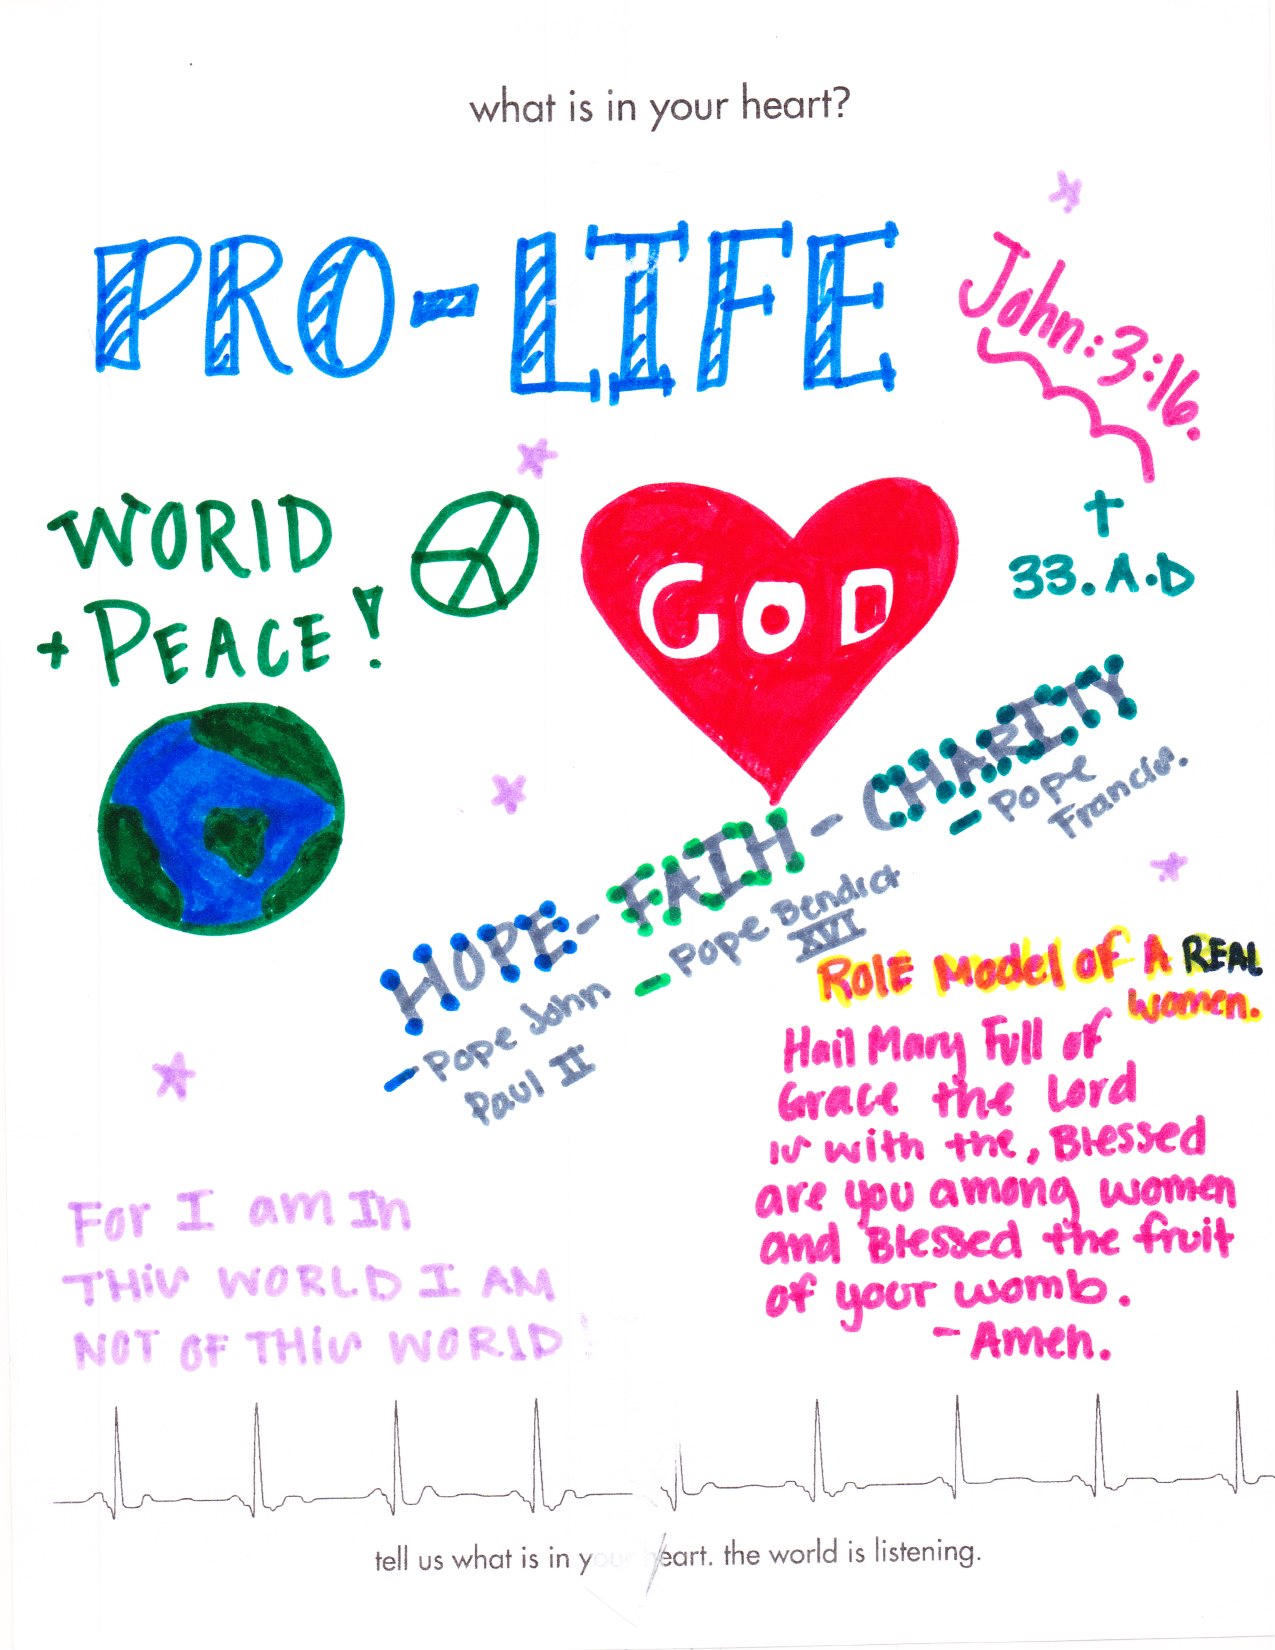 what is in your heart?
PRO-LIFE
John:3:16.
WORlD
+ PEACE!
GOD
†
33.A.D
HOPE- FAITH - CHARITY
- Pope John
Paul II
- Pope Bendict
XVI
- Pope
Francis.
RolE Model of A REAL
women.
Hail Mary Full of
Grace the Lord
is with the, Blessed
are you among women
and Blessed the fruit
of your womb.
- Amen.
For I am In
THis WORLD I AM
NOT OF THis WORlD!
tell us what is in your heart. the world is listening.